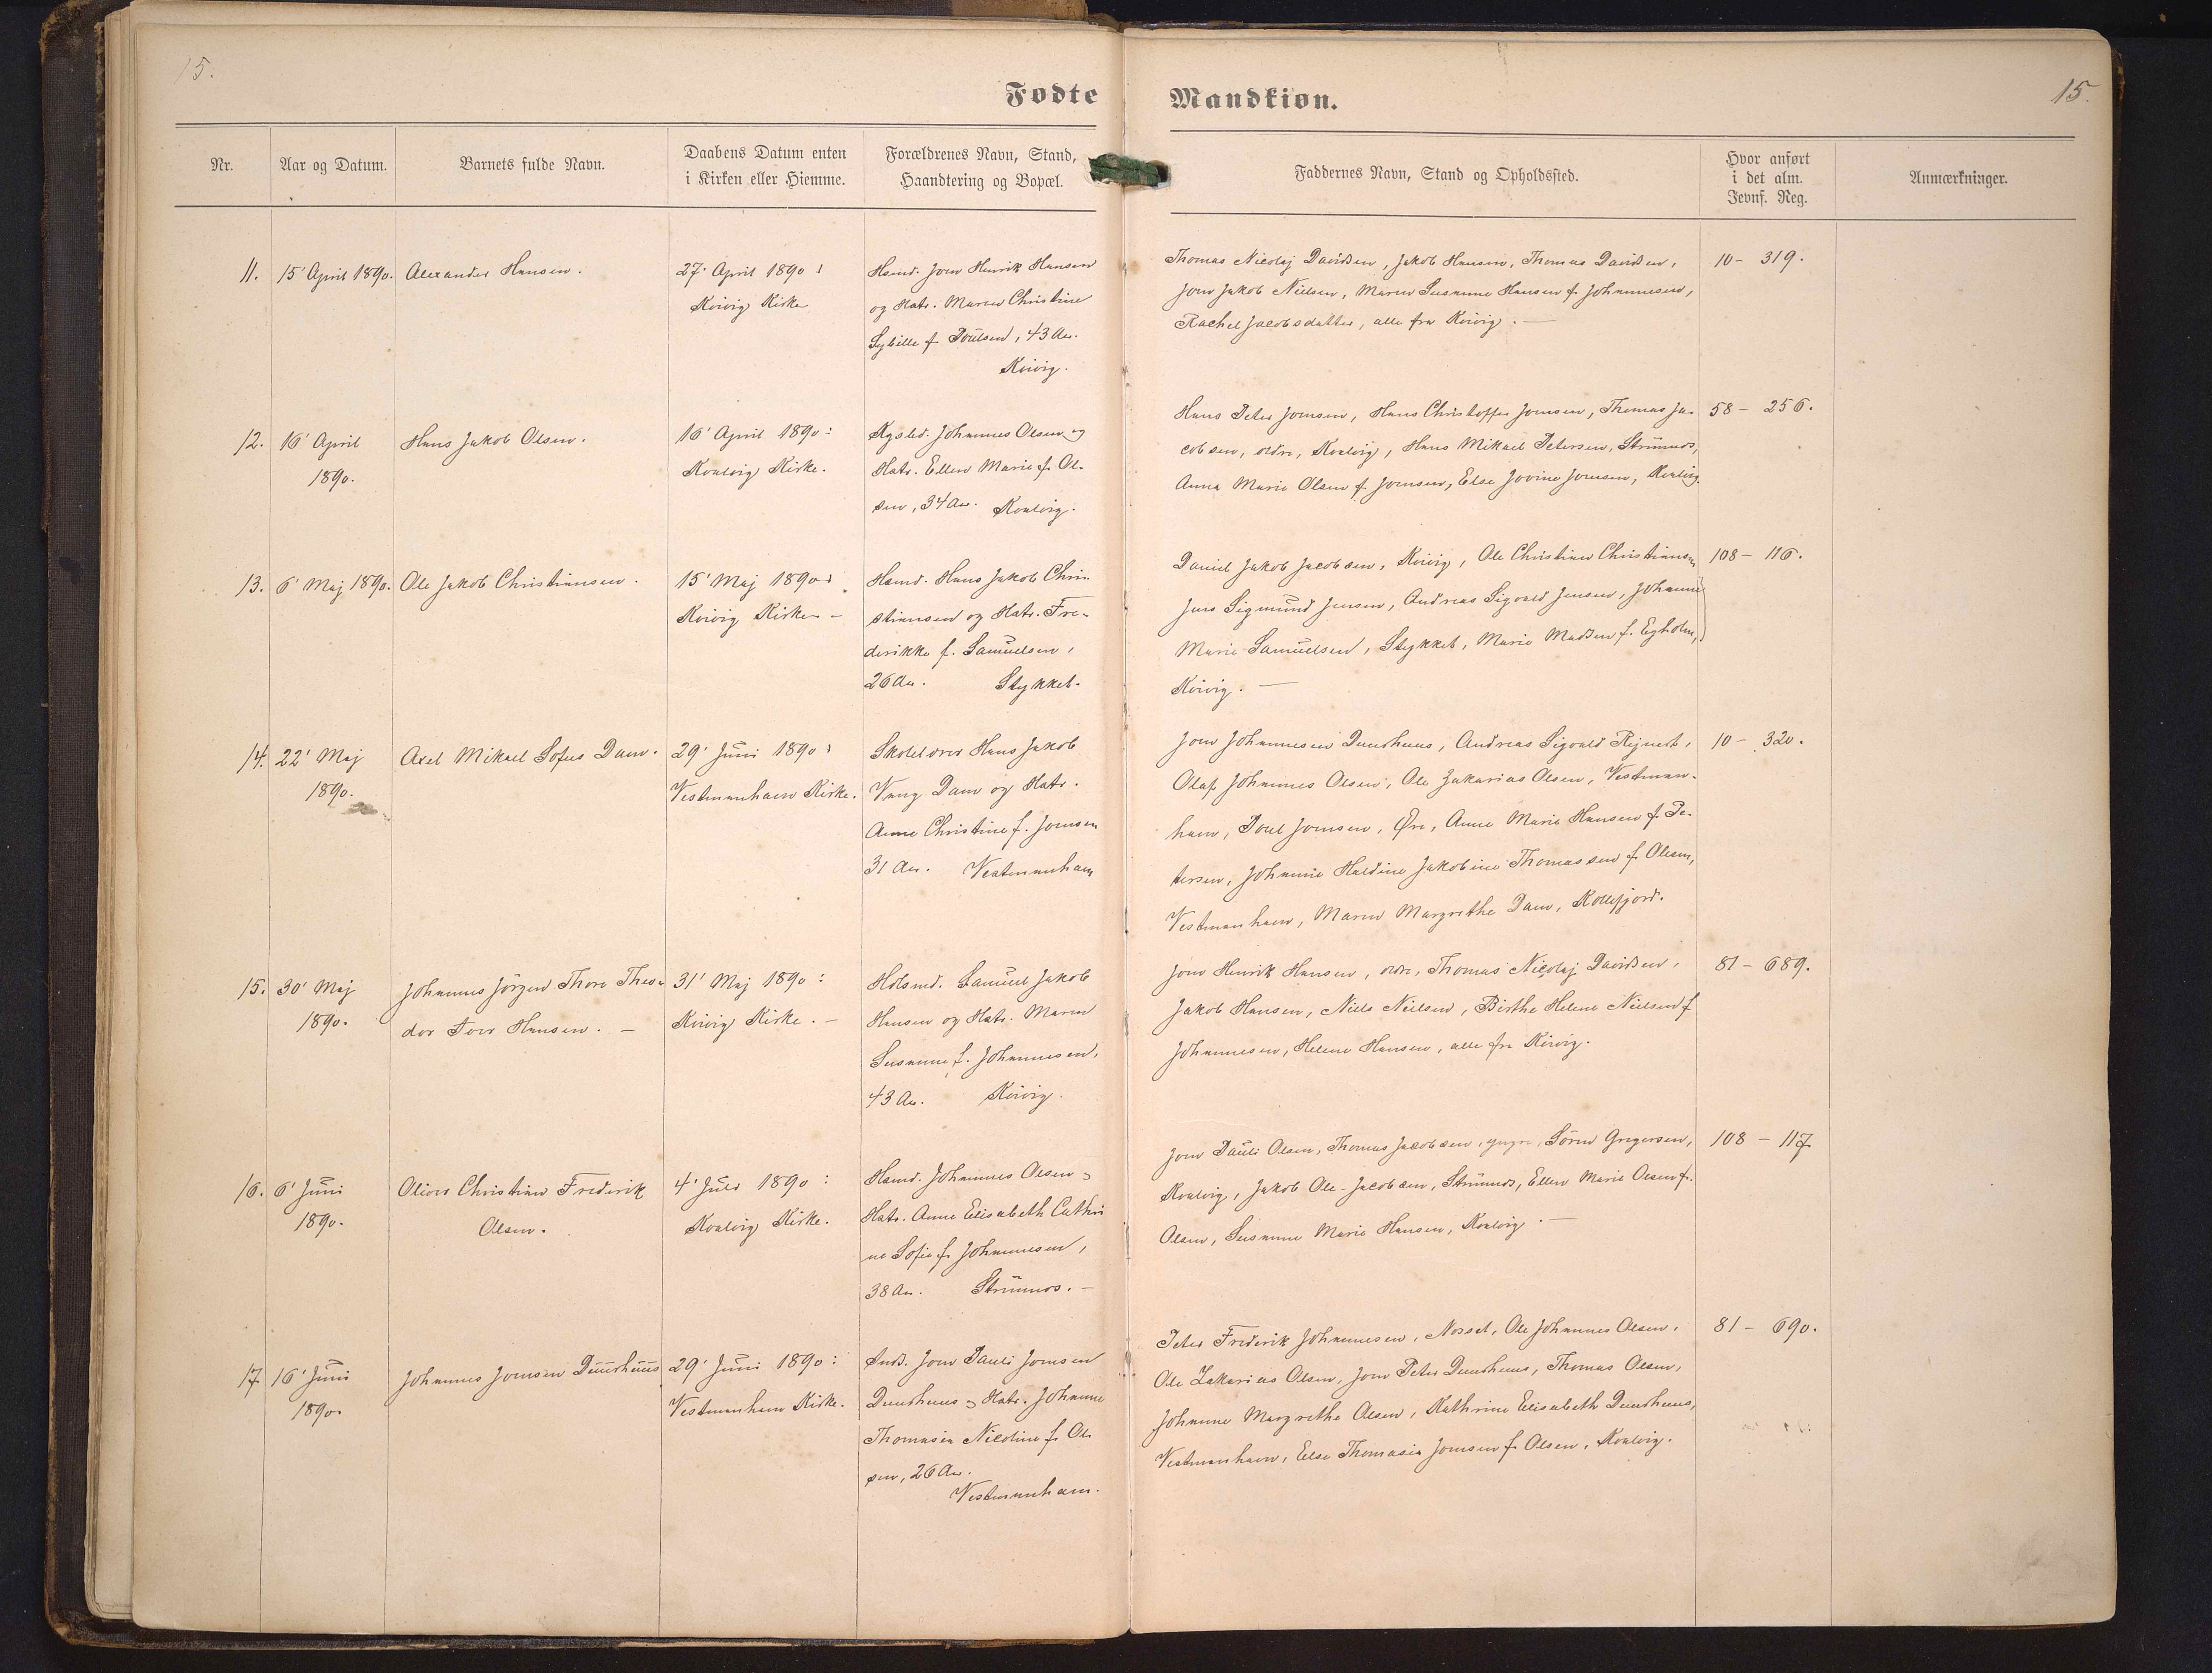 15.
15.
Fødte Mandkiøn.
Nr.
Aar og Datum.
Barnets fulde Navn.
Daabens Datum enten
i Kirken eller Hiemme.
Forældrenes Navn, Stand,
Haandtering og Bopæl.
Faddernes Navn, Stand og Opholdssted.
Hvor anført
i det alm.
Jevnf. Reg.
Anmærkninger.
11.
15' April 1890.
Alexander Hansen.
27' April 1890 :
Kvivig Kirke
Hsmd. Joen Henrik Hansen
og Hstr. Maren Christine
Sybille f. Poulsen, 43 Aar.
Kvivig.
Thomas Nicolaj Davidsen, Jakob Hansen, Thomas Davidsen,
Joen Jakob Nielsen, Maren Susanne Hansen f. Johannesen,
Rachel Jacobsdatter, alle fra Kvivig. —
10 - 319.
12.
16' April
1890.
Hans Jakob Olsen.
16' April 1890 :
Kvalvig Kirke.
Kgsbd. Johannes Olsen og
Hstr. Ellen Marie f. Ol-
sen, 34 Aar. Kvalvig.
Hans Peter Joensen, Hans Christoffer Joensen, Thomas Ja-
cobsen, ældre, Kvalvig, Hans Mikael Petersen, Strømnæs,
Anna Marie Olsen f. Joensen, Else Jovine Joensen, Kvalvig.
58 - 256.
13.
6' Maj 1890.
Ole Jakob Christiansen.
15' Maj 1890 :
Kvivig Kirke —
Hsmd. Hans Jakob Chri-
stiansen og Hstr. Fre-
derikke f. Samuelsen,
26 Aar. Stykket.
Daniel Jakob Jacobsen, Kvivig, Ole Christian Christiansen,
Jens Sigmund Jensen, Andreas Sigvald Jensen, Johanne
Marie Samuelsen, Stykket, Marie Madsen f. Egholm,
Kvivig. —
108 - 116.
14.
22' Maj
1890.
Axel Mikael Sofus Dam.
29' Juni 1890 :
Vestmanhavn Kirke.
Skolelærer Hans Jakob
Vang Dam og Hstr.
Anne Christine f. Joensen
31 Aar. Vestmanhavn
Joen Johannesen Duurhuus, Andreas Sigvald Rejnert,
Olaf Johannes Olsen, Ole Zakarias Olsen, Vestman-
havn, Poul Joensen, Øre, Anne Marie Hansen f. Pe-
tersen, Johanne Haldine Jakobine Thomassen f. Olsen,
Vestmanhavn, Maren Margrethe Dam, Kollefjord.
10 - 320.
15.
30' Maj
1890.
Johannes Jørgen Thore Theo-
dor Hansen. —
31' Maj 1890 :
Kvivig Kirke. —
Samuel Jakob
Hansen og Hstr. Maren
Susanne f. Johannesen,
43 Aar. Kvivig.
Joen Henrik Hansen, ældre, Thomas Nicolaj Davidsen,
Jakob Hansen, Niels Nielsen, Birthe Helene Nielsen f.
Johannesen, Helene Hansen, alle fra Kvivig.
81 - 689.
16.
6' Juni
1890.
Oliver Christian Frederik
Olsen.
4' Juli 1890 :
Kvalvig Kirke.
Hsmd. Johannes Olsen og
Hstr. Anne Elisabeth Cathri
ne Sofie f. Johannesen,
38 Aar. Strømnæs. —
Joen Pauli Olsen, Thomas Jacobsen, yngre, Søren Gregersen,
Kvalvig, Jakob Ole Jacobsen, Strømnæs, Ellen Marie Olsen f.
Olsen, Susanne Marie Hansen, Kvalvig. —
108 - 117
17
16' Juni
1890.
Johannes Joensen Duurhuus
29' Juni 1890 :
Vestmanhavn Kirke.
Inds. Joen Pauli Joensen
Duurhuus og Hstr. Johanne
Thomasia Nicoline f. Ol-
sen, 26 Aar.
Vestmanhavn.
Peter Frederik Johannesen, Norset, Ole Johannes Olsen,
Ole Zakarias Olsen, Joen Peter Duurhuus, Thomas Olsen,
Johanne Margrethe Olsen, Kathrine Elisabeth Duurhuus,
Vestmanhavn, Else Thomasia Joensen f. Olsen, Kvalvig.
81 - 690.